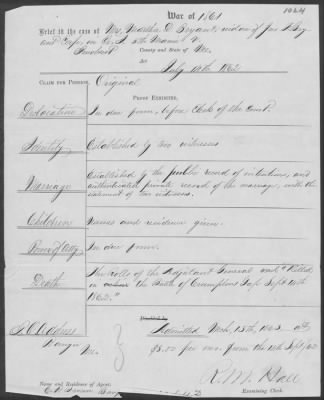 1024
War of 1861
Brief in the case of Mrs. Martha D. Bryant, widow of Jas
Penobscot County and State of Me.
Act July 14th 1862
CLAIM FOR PENSION. Original
PROOF EXHIBITED.
Declaration In due form, before Clerk of the Court.
Identity Established by two witnesses
Marriage Established by the public record of intentions, and
authenticated private record of the marriage, with the
statement of two witnesses.
Children Names and residence given.
Power of Atty In due form.
Death The rolls of the Adjutant General "Killed
in action the Battle of Crumptons Gap Sept 14th
1862."
P.O. Address
Bangor
Me.
Admitted Mch. 13th, 1863 at
$8.00 per mo. from the 14th Sept. 62
R. M. Hall
Examining Clerk.
Name and Residence of Agent.